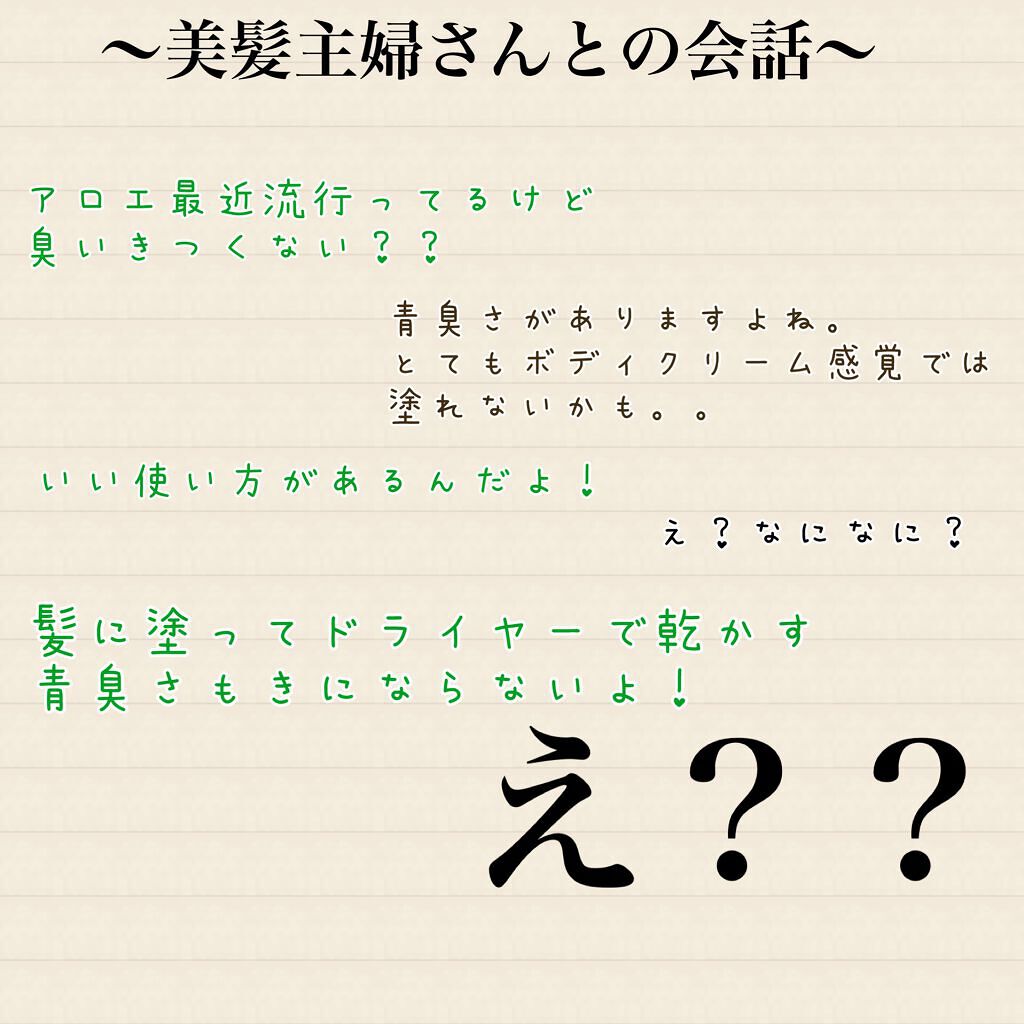 〜美髪主婦さんとの会話〜
アロエ最近流行ってるけど
臭いきつくない??
青臭さがありますよね。
とてもボディクリーム感覚では
塗れないかも。。
いい使い方があるんだよ!
え?なになに?
髪に塗ってドライヤーで乾かす
青臭さもきにならないよ!
え??